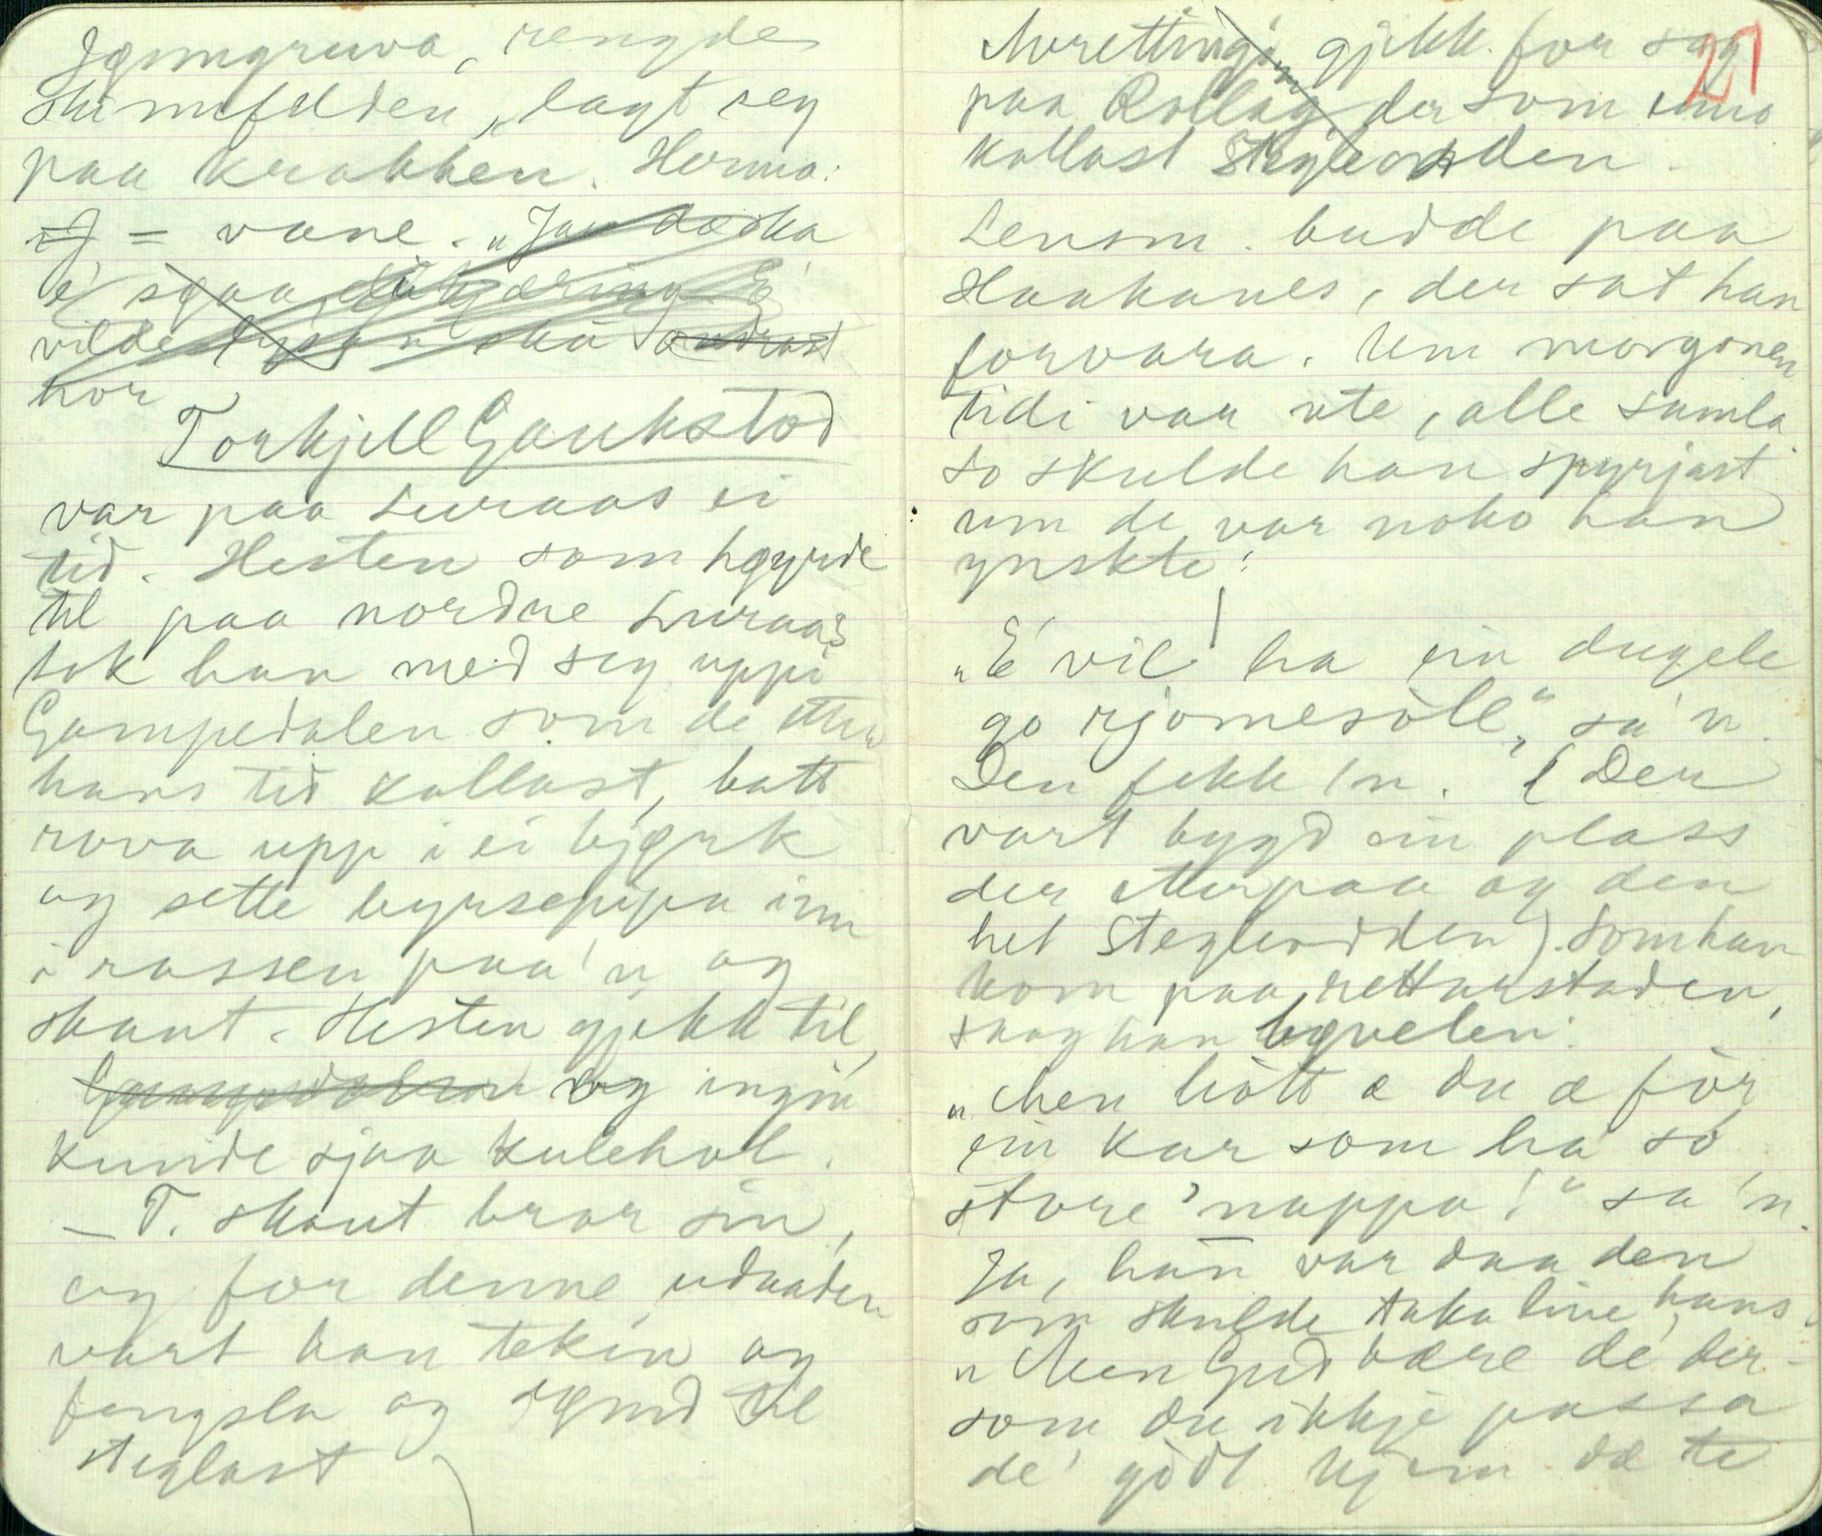 rengde
skinnfelden, lagt seg
paa krakken. Herma:
= vane. "Jau dæ ska
e' sjaa,
vilde
hor
Torkjell Gaukstad
var paa Luraas ei
tid. Hesten som høyrde
til paa nordre Luraas
tok han med seg uppi
Gampedalen som de etter
hans tid kallast, batt
rova upp i ei bjørk
og sette byrsepipa inn
i rassen paa'n og
skaut. Hesten gjekk til,
og ingin
kunde sjaa kulehol.
– T. skaut bror sin,
og for denne udaaden
vart han tekin og
fengsla og dømd til
steglast
27
Avrettingi gjekk for seg
paa Rollag der som enno
kallast Stegleodden.
Lensm. budde paa
Haakanes, der sat han
forvara. Um morgonen
tidi var ute, alle samla
so skulde han spyrjast
um de var noko han
ynskte:
"E' vil ha ein dugele
go rjomesòll", sa'n.
Den fekk 'n. (Der
vart bygd ein plass
der etterpaa og den
het Stegleodden). Som han
kom paa rettarstaden,
saag han bøvelen:
"Men hòtt æ du æ fòr
ein kar som ha so
store 'nappa!" sa'n.
Ja, han var daa den
som skulde taka live hans.
"Men Gud bære de' der-
som du ikkje passa
de' gòdt kjem dæ te